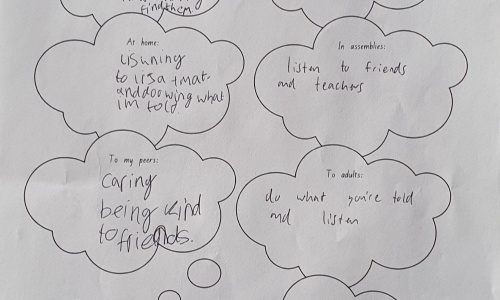 find them.
At home:
lisuning
to
and doowing what
im told
In assemblies:
listen to friends
and teachers
To my peers:
caring
being kind
to friends.
To adults:
do what you're told
and listen